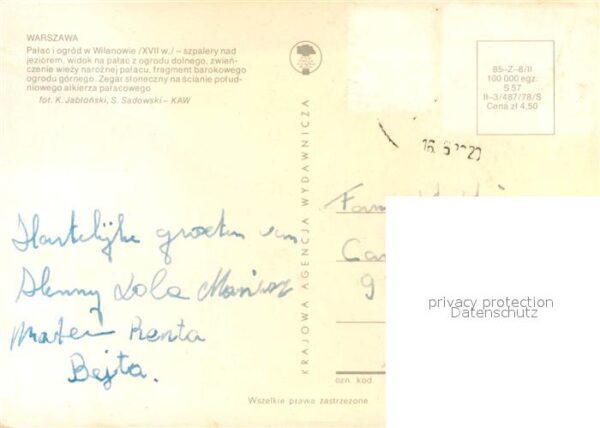 WARSZAWA
Pałac i ogród w Wilanowie /XVII w./ – szpalery nad
jeziorem, widok na pałac z ogrodu dolnego, zwień-
czenie wieży narożnej pałacu, fragment barokowego
ogrodu górnego. Zegar słoneczny na ścianie połud-
niowego alkierza pałacowego
fot. K. Jabłoński, S. Sadowski – KAW
KRAJOWA AGENCJA WYDAWNICZA
85–Z–8/II
100 000 egz.
S 57
II–3/487/78/S
Cena zł 4,50
Fam
Hartelijke groeten van
Lola
Renta
Bejta.
ozn. kod.
Wszelkie prawa zastrzeżone
privacy protection
Datenschutz